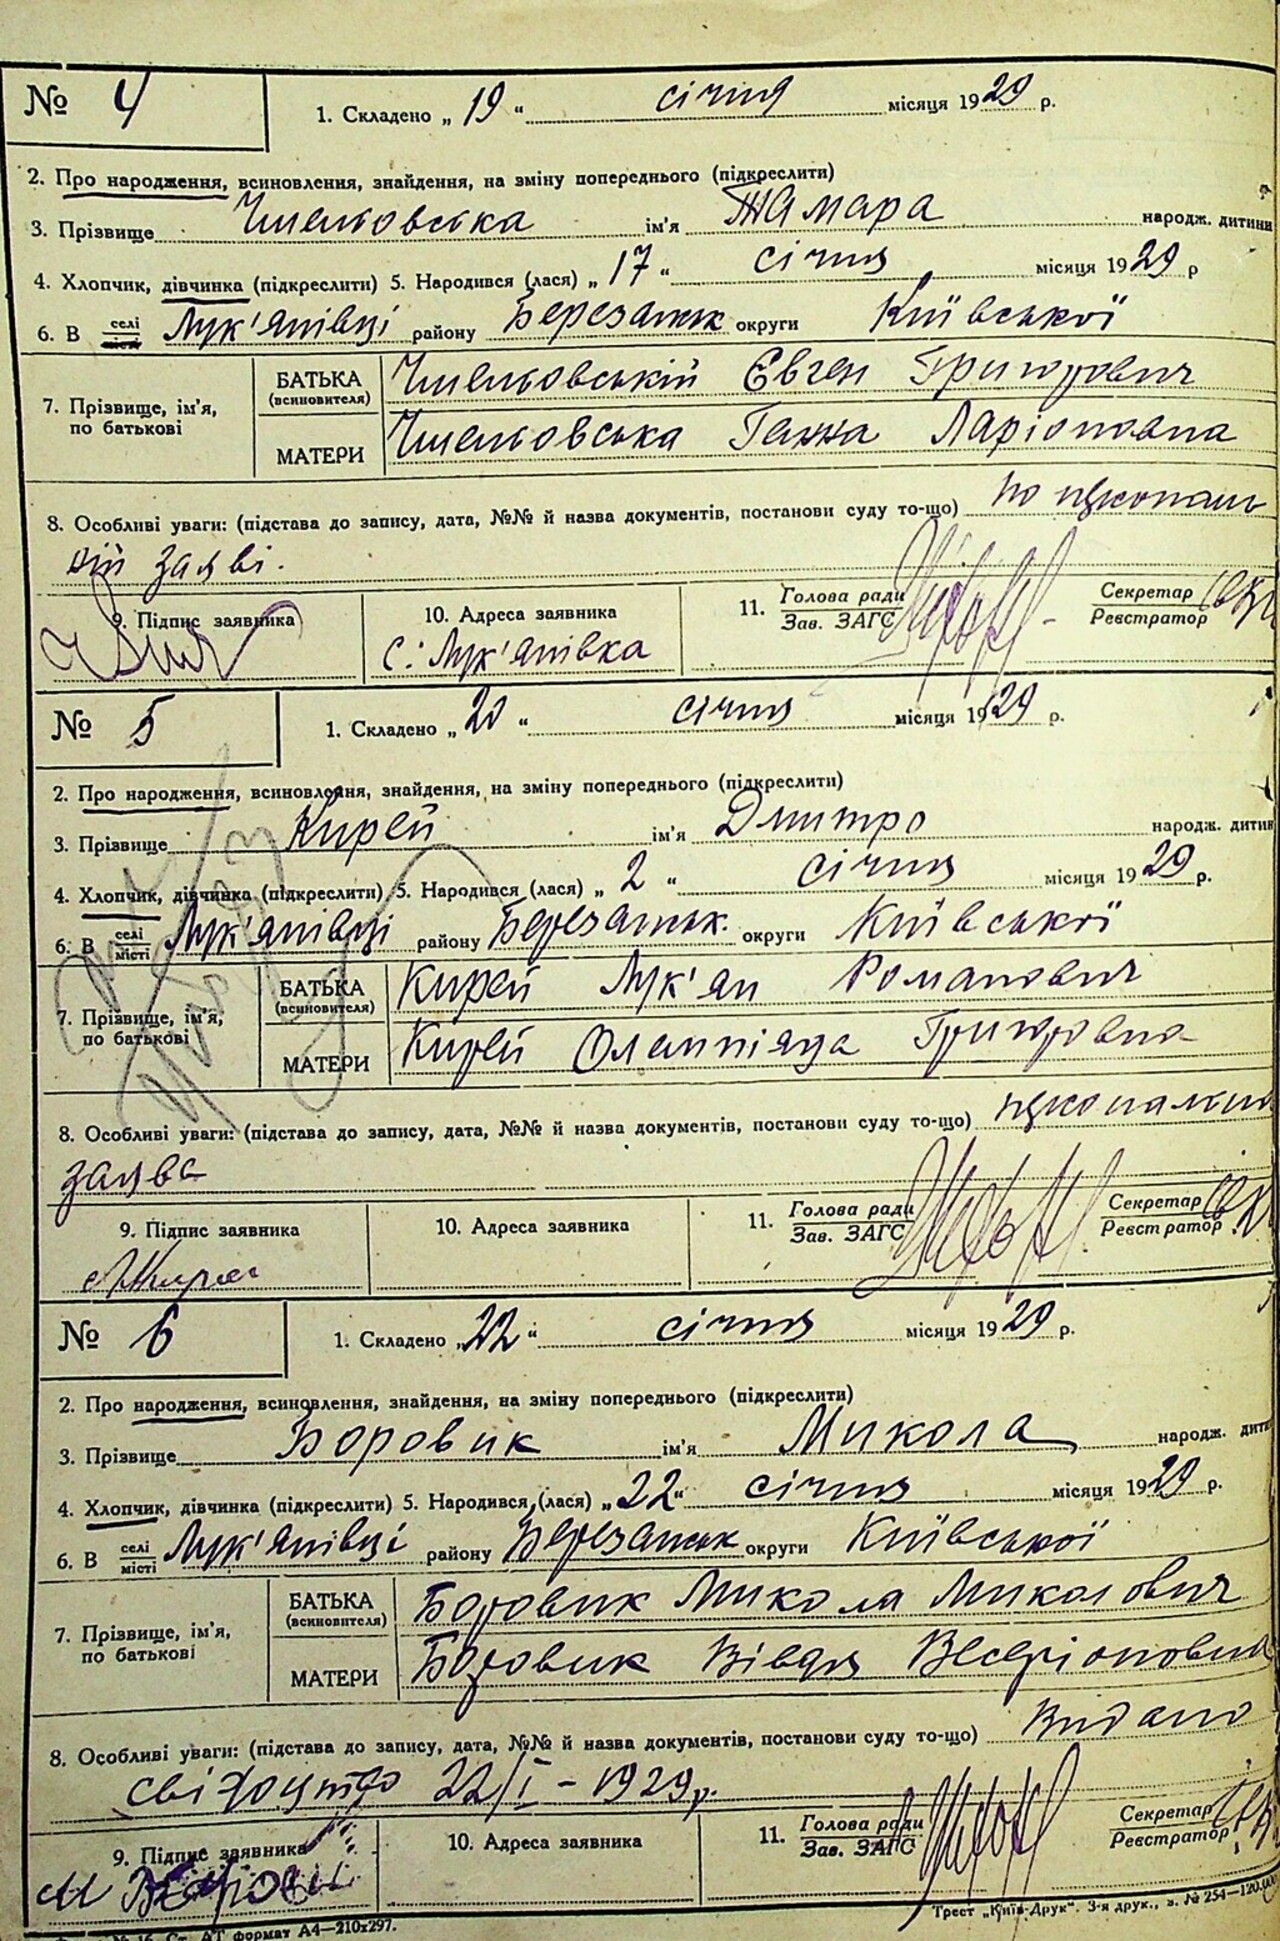 № 4
1. Складено „ 19 “ січня місяця 1929 р.
2. Про народження, всиновлення, знайдення, на зміну попереднього (підкреслити)
3. Прізвище ім'я Тамара народж. дитини
4. Хлопчик, дівчинка (підкреслити) 5. Народився (лася) „ 17 “ січня місяця 1929 р
6. В селі місті Лук'янівці району Березанськ округи Київської
7. Прізвище, ім'я, по батькові
БАТЬКА (всиновителя) Євген Григорович
МАТЕРИ Ганна Ларіоновна
8. Особливі уваги: (підстава до запису, дата, №№ й назва документів, постанови суду то-що) по
заяві.
9. Підпис заявника
10. Адреса заявника
с. Лук'янівка
11. Голова ради Зав. ЗАГС
Секретар Реєстратор
№ 5
1. Складено „ 20 “ січня місяця 1929 р.
2. Про народження, всиновлення, знайдення, на зміну попереднього (підкреслити)
3. Прізвище Кирей ім'я Дмитро народж. дитин
4. Хлопчик, дівчинка (підкреслити) 5. Народився (лася) „ 2 “ січня місяця 1929 р.
6. В селі місті Лук'янівці району Березанськ. округи Київської
7. Прізвище, ім'я, по батькові
БАТЬКА (всиновителя) Кирей Лук'ян Романович
МАТЕРИ Кирей Олампіяда Григоровна
8. Особливі уваги: (підстава до запису, дата, №№ й назва документів, постанови суду то-що)
заява
9. Підпис заявника
10. Адреса заявника
11. Голова ради Зав. ЗАГС
Секретар Реєстратор
№ 6
1. Складено „ 22 “ січня місяця 1929 р.
2. Про народження, всиновлення, знайдення, на зміну попереднього (підкреслити)
3. Прізвище Боровик ім'я Микола народж. дити
4. Хлопчик, дівчинка (підкреслити) 5. Народився (лася) „ 22 “ січня місяця 1929 р.
6. В селі місті Лук'янівці району Березанськ округи Київської
7. Прізвище, ім'я, по батькові
БАТЬКА (всиновителя) Боровик Микола Миколович
МАТЕРИ Боровик Вівдя
8. Особливі уваги: (підстава до запису, дата, №№ й назва документів, постанови суду то-що) Видано
свідоцтво 22/I - 1929 р.
9. Підпис заявника
10. Адреса заявника
11. Голова ради Зав. ЗАГС
Секретар Реєстратор
№ 16. Ст. АТ формат А4—210х297.
Трест „Київ-Друк“. 3-я друк., з. № 254—120.000